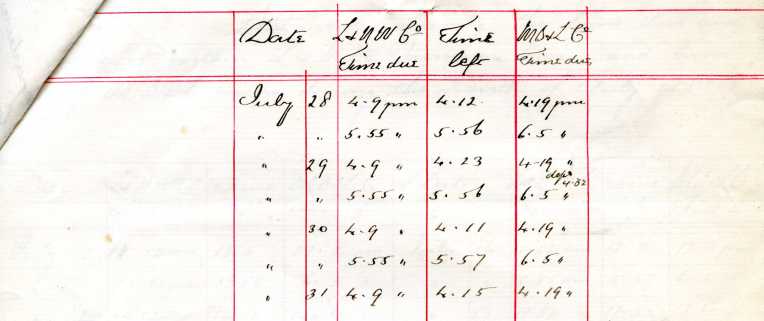 Date L&NW Co Time M S & L Co
Time due left Time due
July 28 4.9 pm 4.12 4.19 pm
" " 5.55 " 5.56 6.5 "
" 29 4.9 " 4.23 4.19 "
dept 4.32
" " 5.55 " 5.56 6.5 "
" 30 4.9 " 4.11 4.19 "
" " 5.55 " 5.57 6.5 "
" 31 4.9 " 4.15 4.19 "